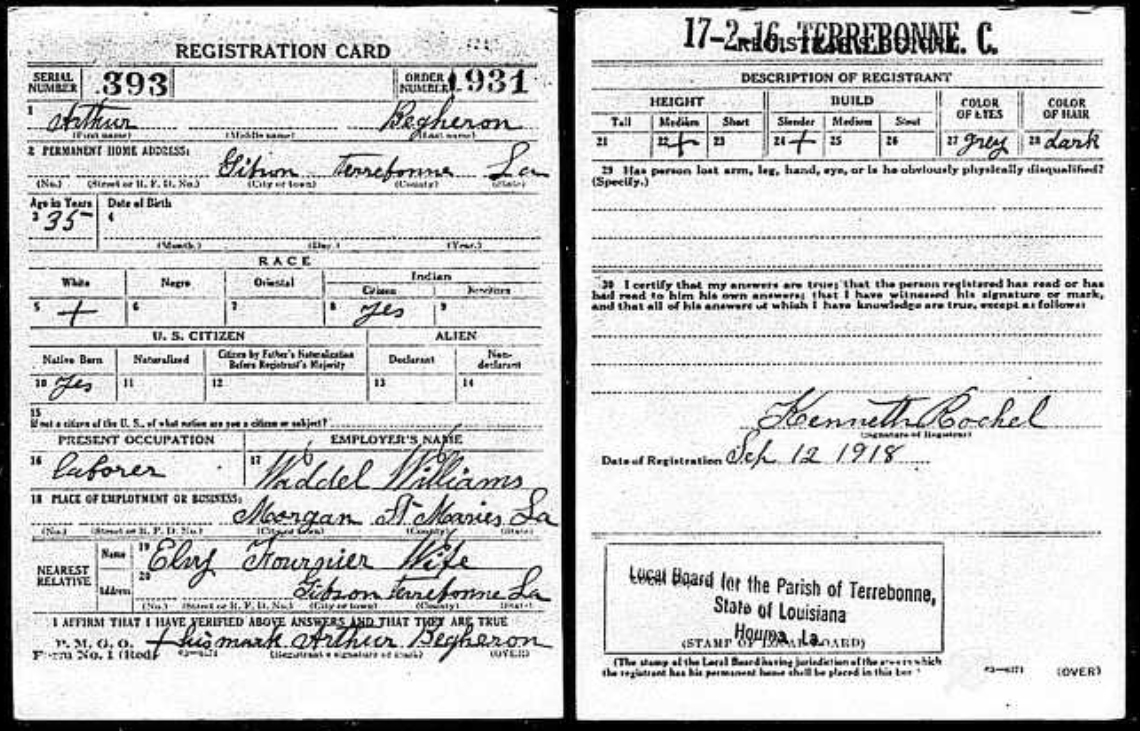 REGISTRATION CARD
SERIAL NUMBER 393 ORDER NUMBER 1931
1 Arthur Begheron
(First name) (Middle name) (Last name)
2 PERMANENT HOME ADDRESS:
Gibson Terrebonne La
(No.) (Street or R. F. D. No.) (City or town) (County) (State)
Age in Years Date of Birth
3 35 4
(Month.) (Day.) (Year.)
RACE
White Negro Oriental Indian
Citizen Noncitizen
5 + 6 7 8 Yes 9
U. S. CITIZEN ALIEN
Native Born Naturalized Citizen by Father's Naturalization Before Registrant's Majority Declarant Non-declarant
10 Yes 11 12 13 14
15
If not a citizen of the U. S., of what nation are you a citizen or subject?
PRESENT OCCUPATION EMPLOYER'S NAME
16 laborer 17 Waddel Williams
18 PLACE OF EMPLOYMENT OR BUSINESS:
Morgan St Maries La
(No.) (Street or R. F. D. No.) (City or town) (County) (State)
NEAREST RELATIVE Name 19 Elvy Fournier Wife
Address 20 Gibson Terrebonne La
(No.) (Street or R. F. D. No.) (City or town) (County) (State)
I AFFIRM THAT I HAVE VERIFIED ABOVE ANSWERS AND THAT THEY ARE TRUE
P. M. G. O.
Form No. 1 (Red) + his mark Arthur Begheron
(Registrant's signature or mark) (OVER)
17-2-16. TERREBONNE. C.
DESCRIPTION OF REGISTRANT
HEIGHT BUILD COLOR OF EYES COLOR OF HAIR
Tall Medium Short Slender Medium Stout
21 22 + 23 24 + 25 26 27 grey 28 dark
29 Has person lost arm, leg, hand, eye, or is he obviously physically disqualified?
(Specify.)
30 I certify that my answers are true; that the person registered has read or has
had read to him his own answers; that I have witnessed his signature or mark,
and that all of his answers of which I have knowledge are true, except as follows:
Kenneth Rochel
(Signature of Registrar)
Date of Registration Sep 12 1918
Local Board for the Parish of Terrebonne,
State of Louisiana
Houma, La.
(STAMP OF LOCAL BOARD)
(The stamp of the Local Board having jurisdiction of the area in which
the registrant has his permanent home shall be placed in this box.)
(OVER)